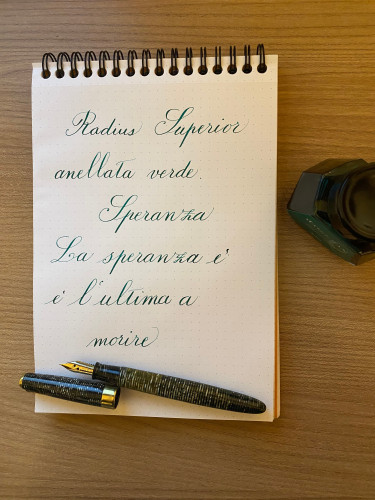 Radius Superior
anellata verde.
Speranza
La speranza é
é l'ultima a
morire